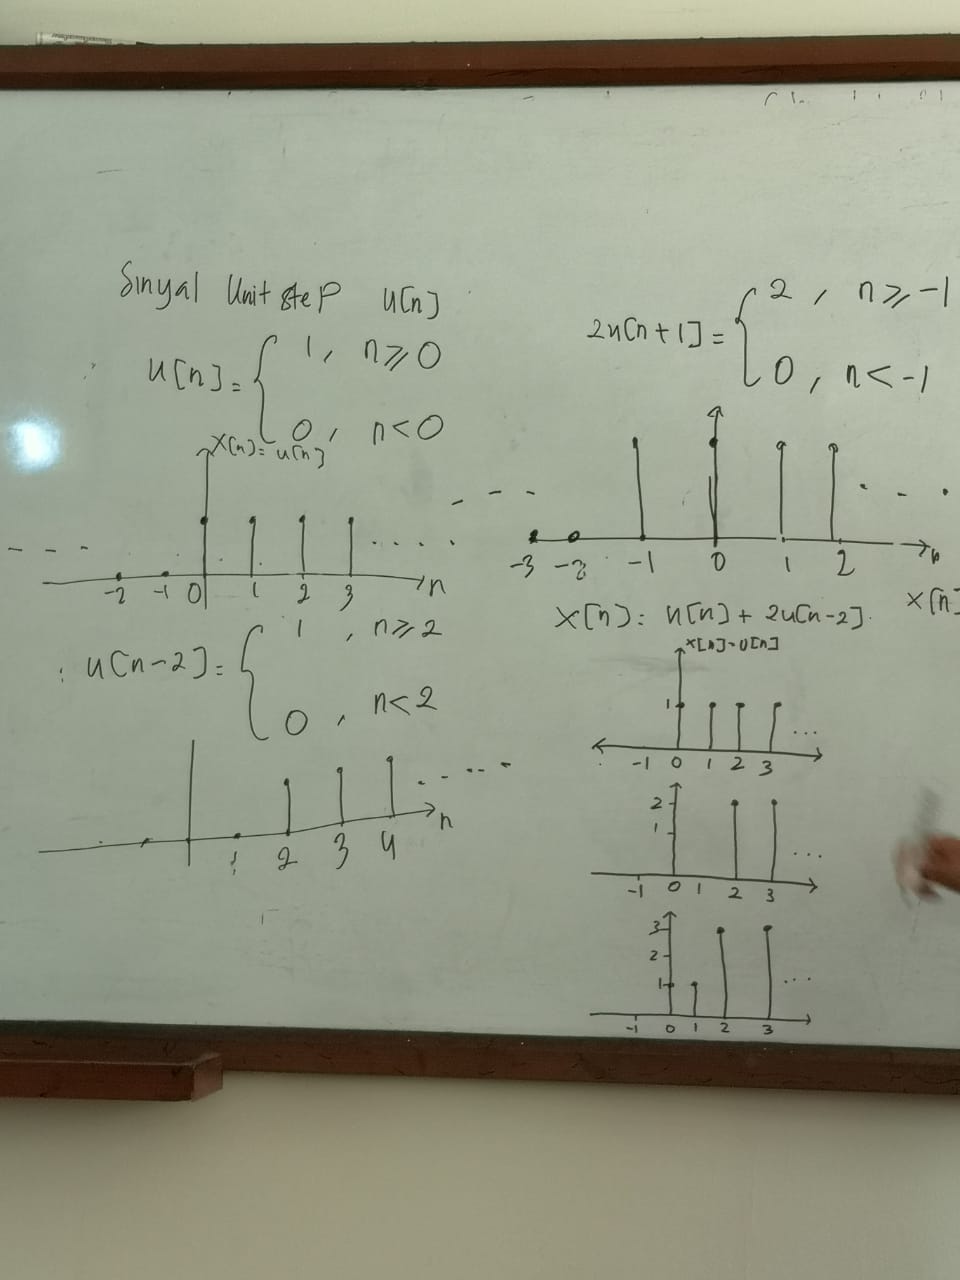 Sinyal Unit step u[n]
u[n] = { 1, n ≥ 0
0, n < 0
x[n] = u[n]
-2 -1 0 1 2 3 n
u[n-2] = { 1, n ≥ 2
0, n < 2
1 2 3 4 n
2u[n+1] = { 2, n ≥ -1
0, n < -1
-3 -2 -1 0 1 2 n
x[n] = u[n] + 2u[n-2]. x[n]
x[n] = u[n]
1
-1 0 1 2 3
2
1
-1 0 1 2 3
3
2
1
-1 0 1 2 3